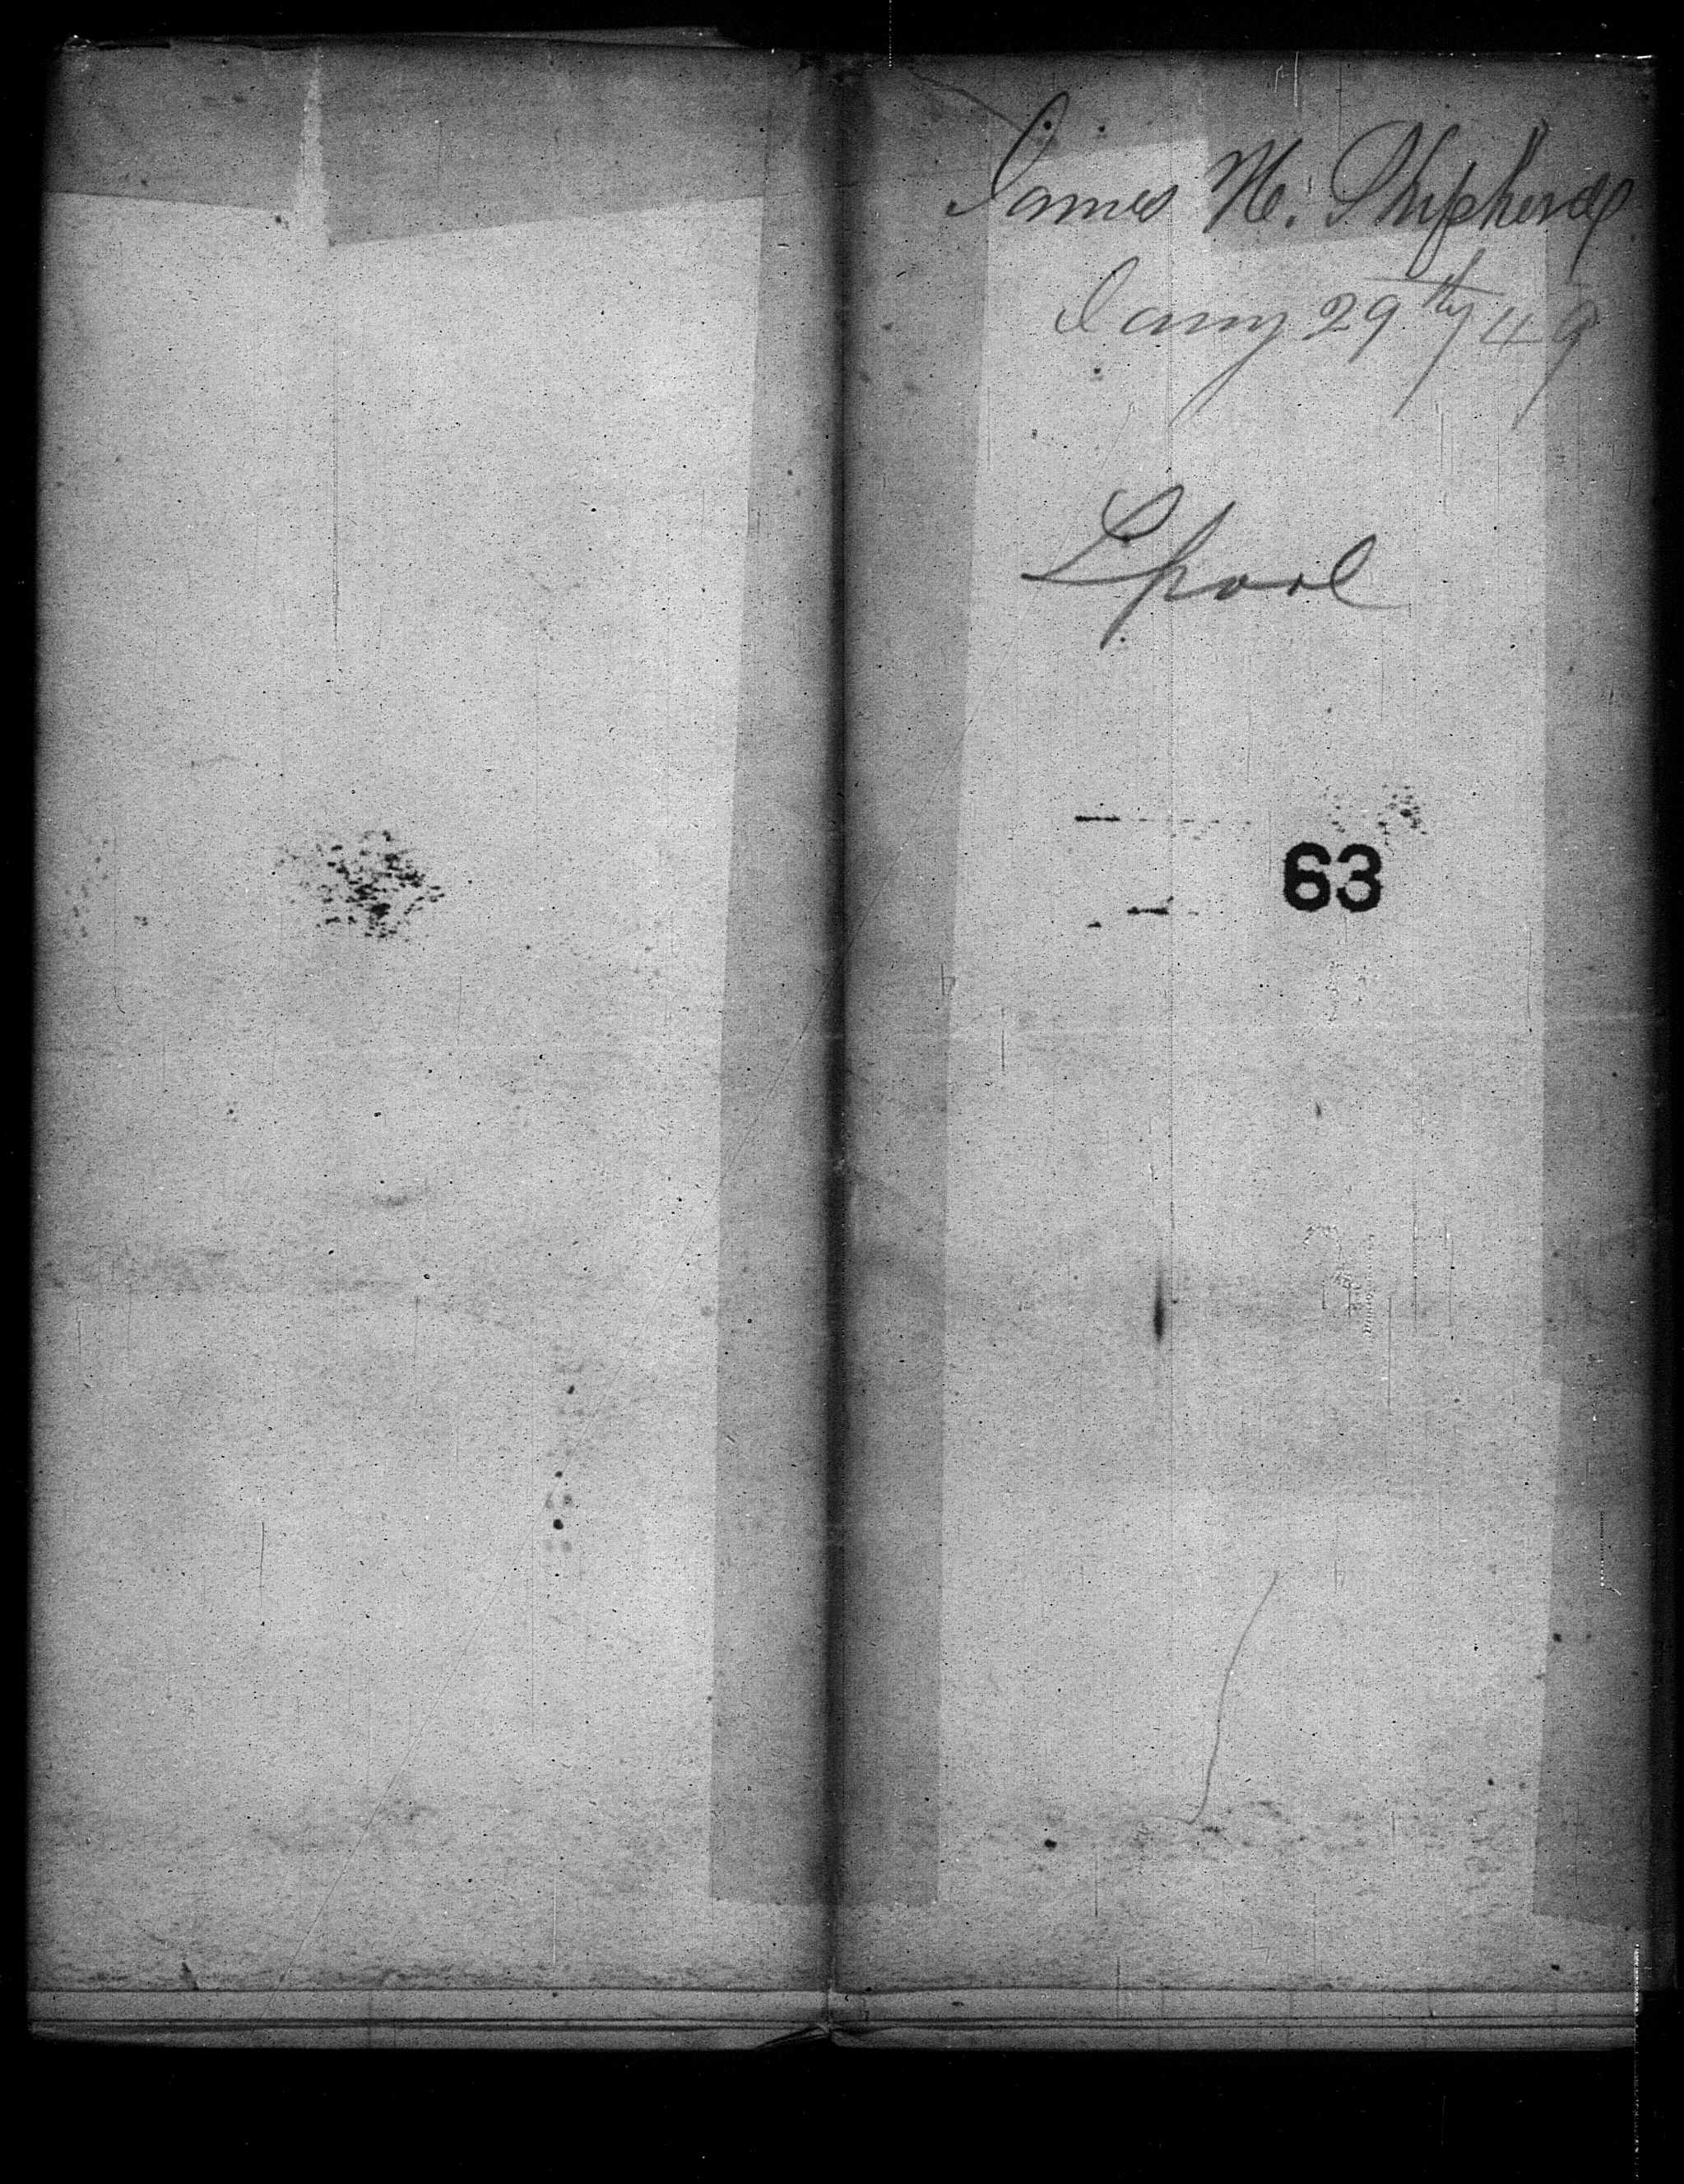 James H. Shepherd
Jany 29th/49
Lpool
63